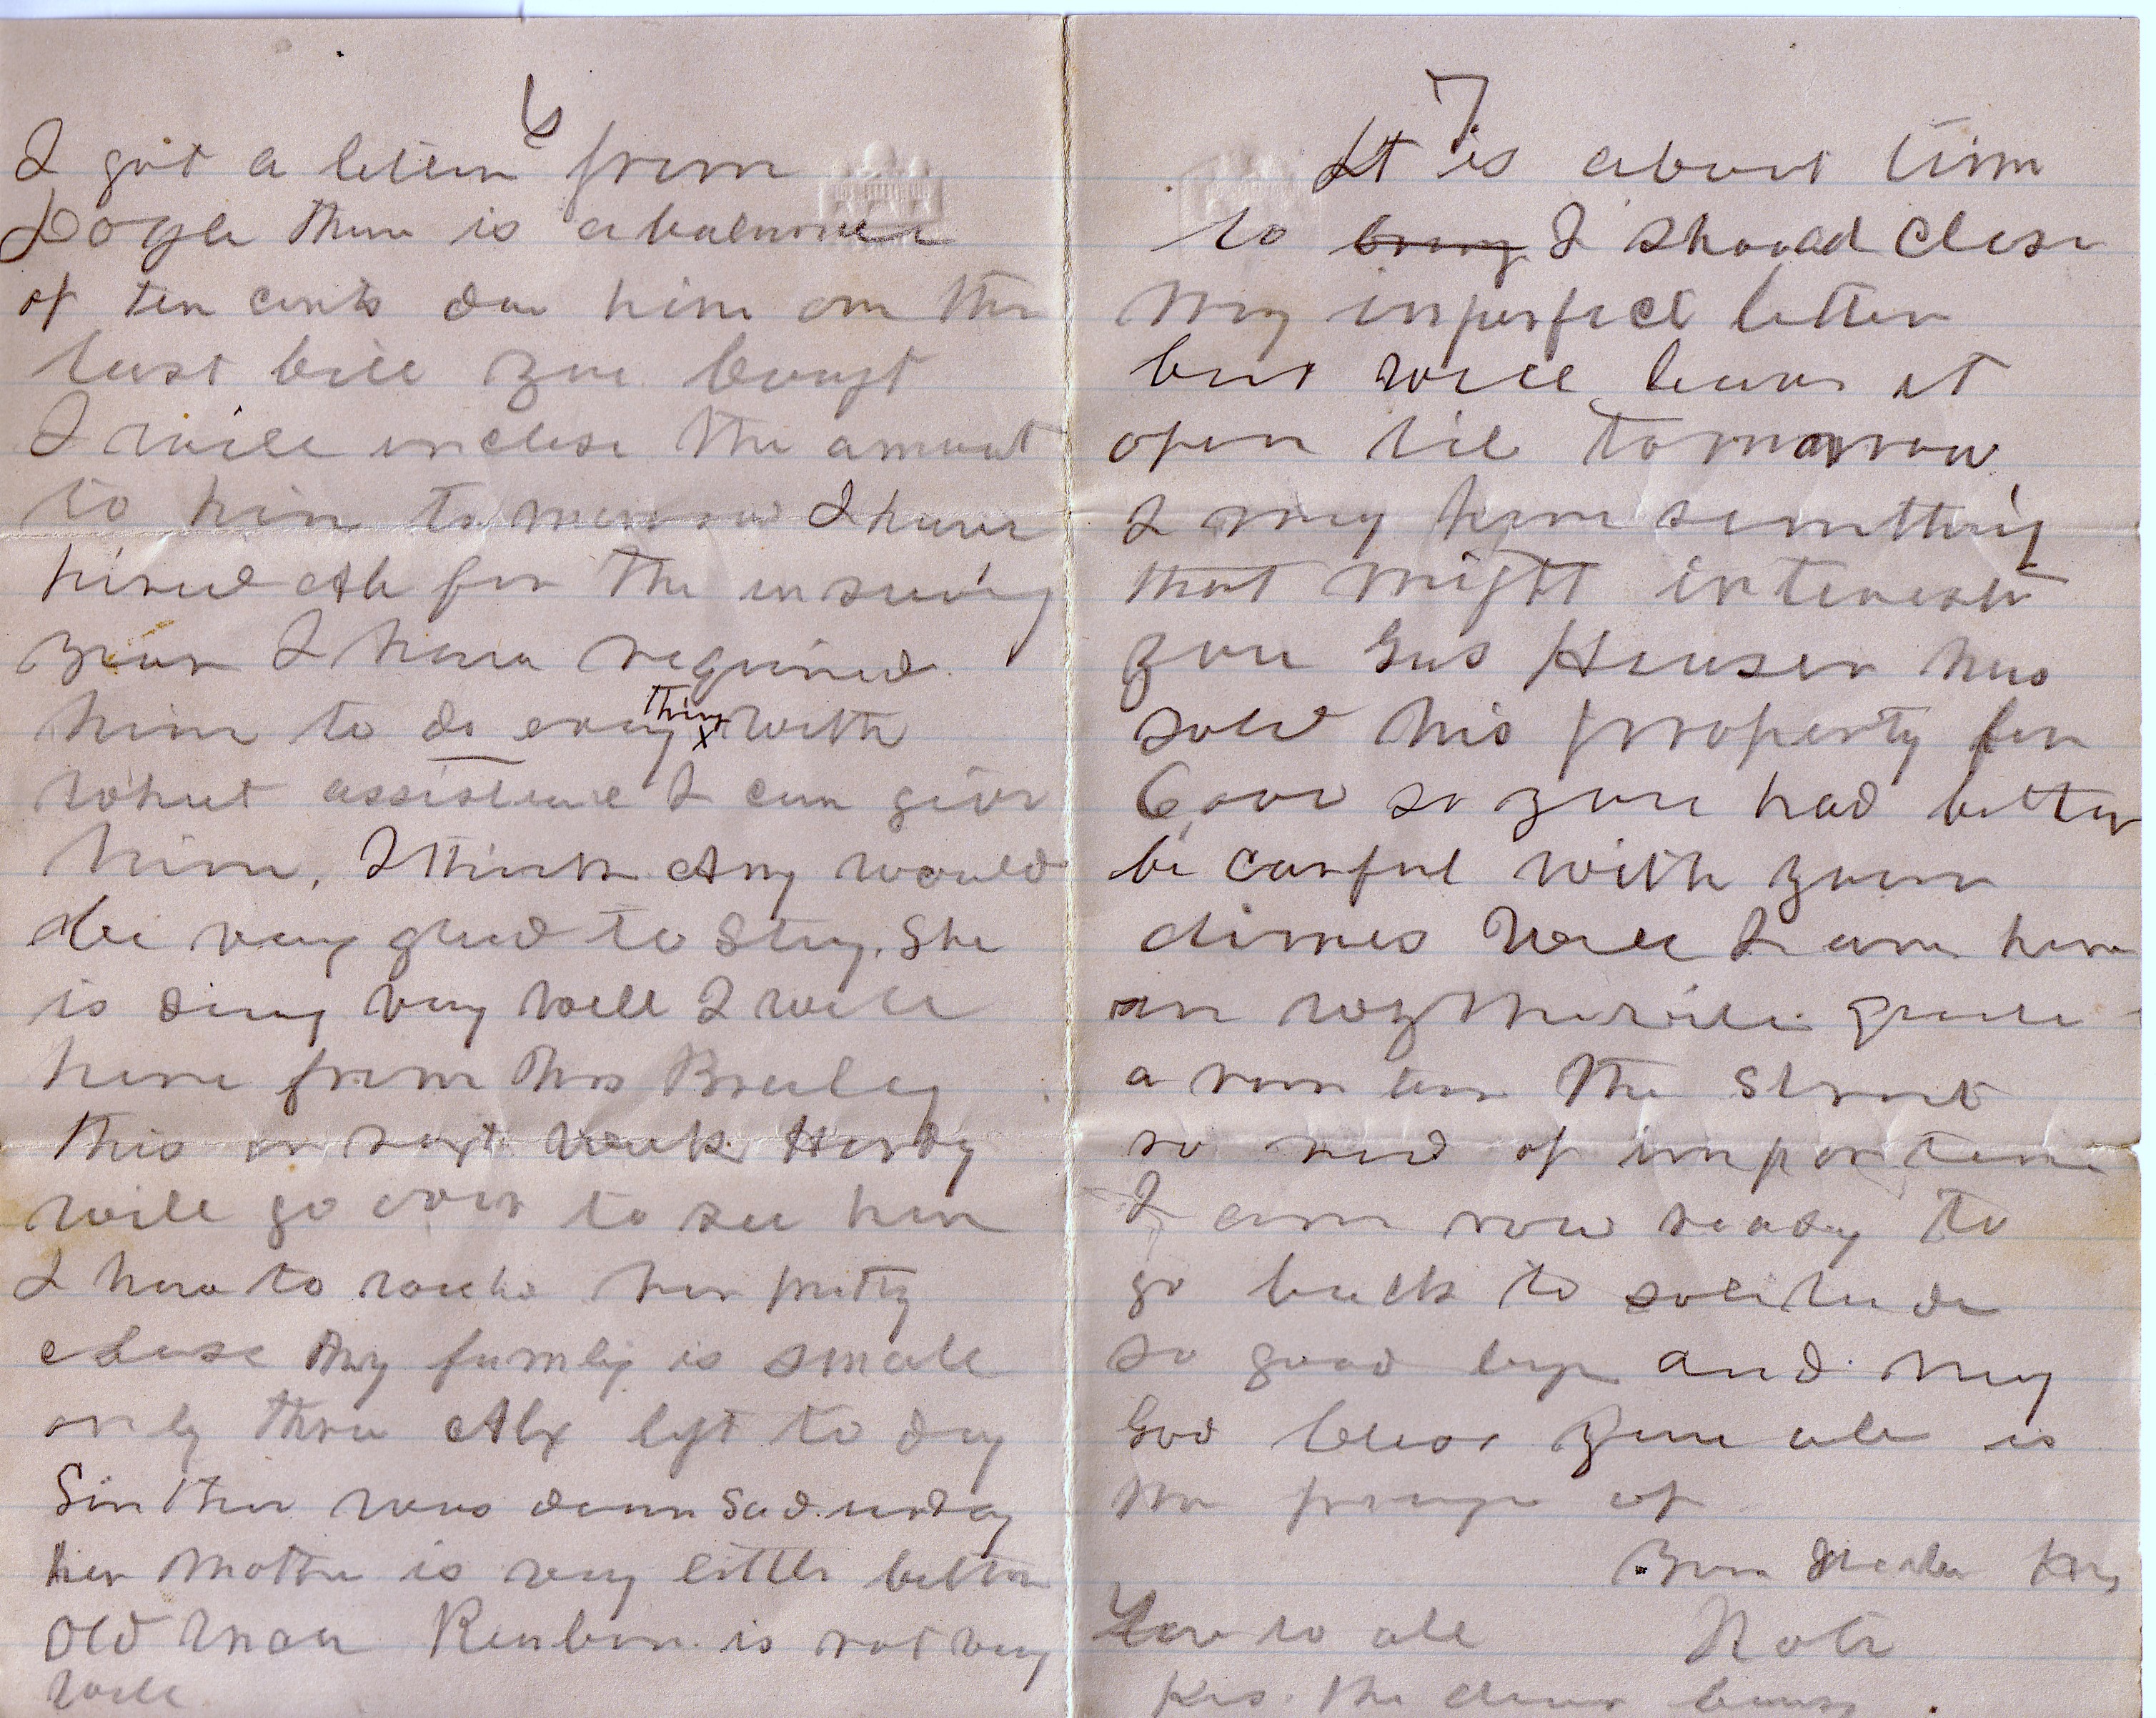 6
I got a letter from
Dogle there is a balance
of ten cents due him on the
last bill you bougt
I will inclose the amout
to him tomorrow I have
hired Ab for the insuing
year I have required
him to do evry thing x with
what assistance I can give
him, I think Amy would
be very glad to Stay. She
is doing very well I will
here from Mrs Braley
this or next week Hardy
will go over to see her
I have to watch her pretty
close My family is small
only three Alx left to day
Sinther was down Sadurday
her Mother is very little better
Old Man Reuben is not very
well
7
It is about time
to I should close
my imperfect letter
but will leave it
open til tomorrow
I may have somthing
that might interest
you Gus Hauser has
sold his property for
6000 so you had better
be carful with your
dimes Well I am here
in Wytheville quite
a man on the Street
so ned of importance
I am now ready to
go back to solitude
so good bye and may
God bless you all is
the prayr of
Your
Love to all Rob
Kis the dear